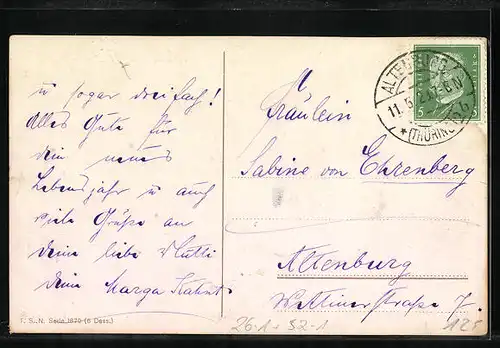 u sogar dreifach!
Alles Gute für
dein neues
Lebensjahr u auch
viele Grüße an
deine liebe Mutti
deine Marga
T. S. N. Serie 1879 (6 Dess.)
Fräulein
Sabine von Ehrenberg
Altenburg
Wettinerstraße 7.
ALTENBURG
11.5.
(THÜRING)
5
26-1 + 52-1
125